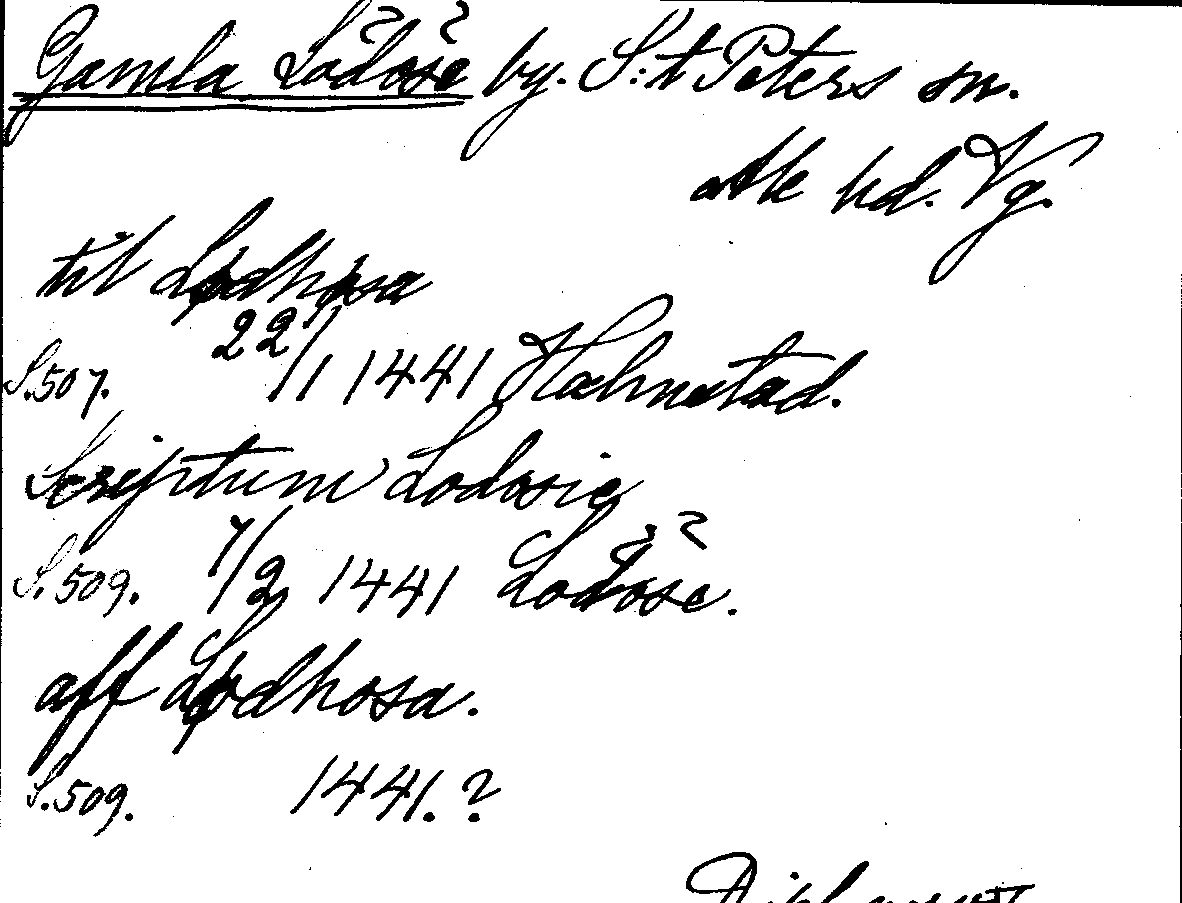 Gamla Lödöse by. S:t Peters sn.
Ale hd. Vg.
til Lødhøsa
S.507. 22/1 1441 Halmstad.
Scriptum Lodosie
S.509. 7/2 1441 Lödöse.
aff Lødhosa.
S.509. 1441.?